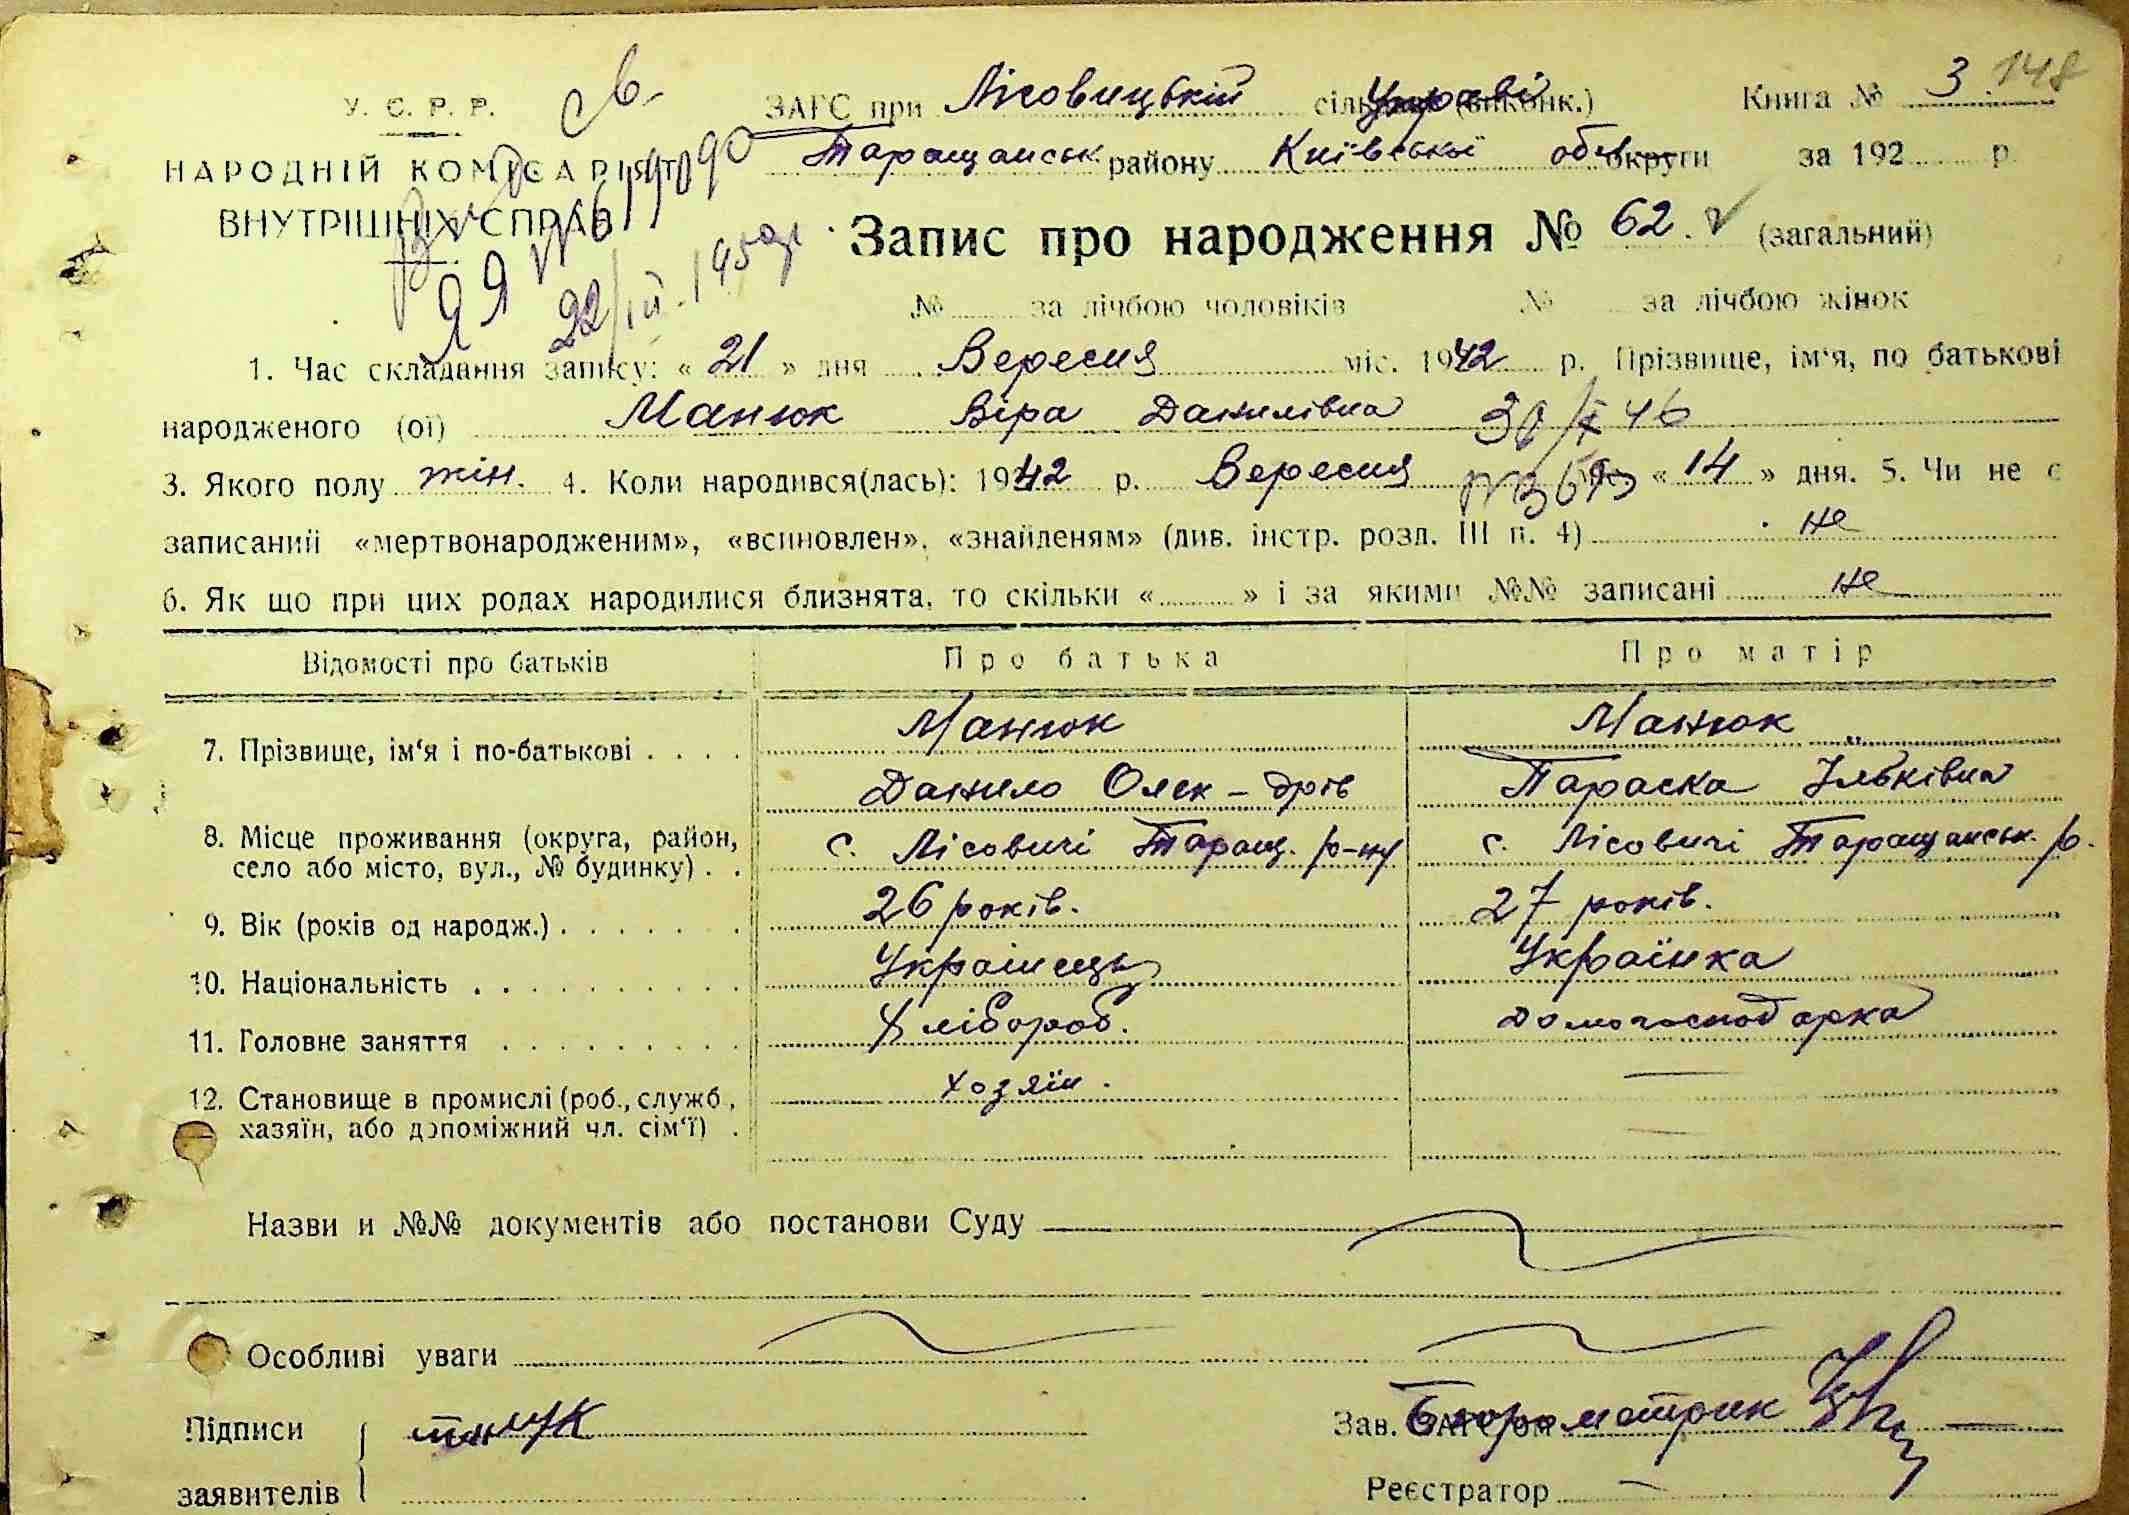 У. С. Р. Р. св. ЗАГС при Лісовицькій сіль Управі (виконк.) Книга № 3 148
НАРОДНІЙ КОМІСАРІЯТ Таращанськ. району Київської обл. округи за 192 р.
ВНУТРІШНІХ СПРАВ
Запис про народження № 62. (загальний)
22/III. 195
№ за лічбою чоловіків № за лічбою жінок
1. Час складання запису: « 21 » дня Вересня міс. 1942 р. Прізвище, ім'я, по батькові
народженого (ої) Манюк Віра Данилівна 30/X 46
3. Якого полу жін. 4. Коли народився(лась): 1942 р. Вересня міс. « 14 » дня. 5. Чи не є
записаний «мертвонародженим», «всиновлен», «знайденям» (див. інстр. розл. III п. 4) не
6. Як що при цих родах народилися близнята, то скільки « » і за якими №№ записані не
Відомості про батьків Про батька Про матір
7. Прізвище, ім'я і по-батькові . . . . Манюк Манюк
Данило Олек-дрів Параска Ільківна
8. Місце проживання (округа, район, с. Лісовичі Таращ. р-ну с. Лісовичі Таращанськ. р.
село або місто, вул., № будинку) . .
9. Вік (років од народж.) . . . . . . . 26 років. 27 років.
10. Національність . . . . . . . . . . Українець Українка
11. Головне заняття . . . . . . . . . Хлібороб. домогосподарка
12. Становище в промислі (роб., служб., хозяїн. —
хазяїн, або допоміжний чл. сім'ї) . —
Назви и №№ документів або постанови Суду
Особливі уваги
Підписи Зав. ЗАГС'ом Бюро метрик
заявителів Реєстратор —